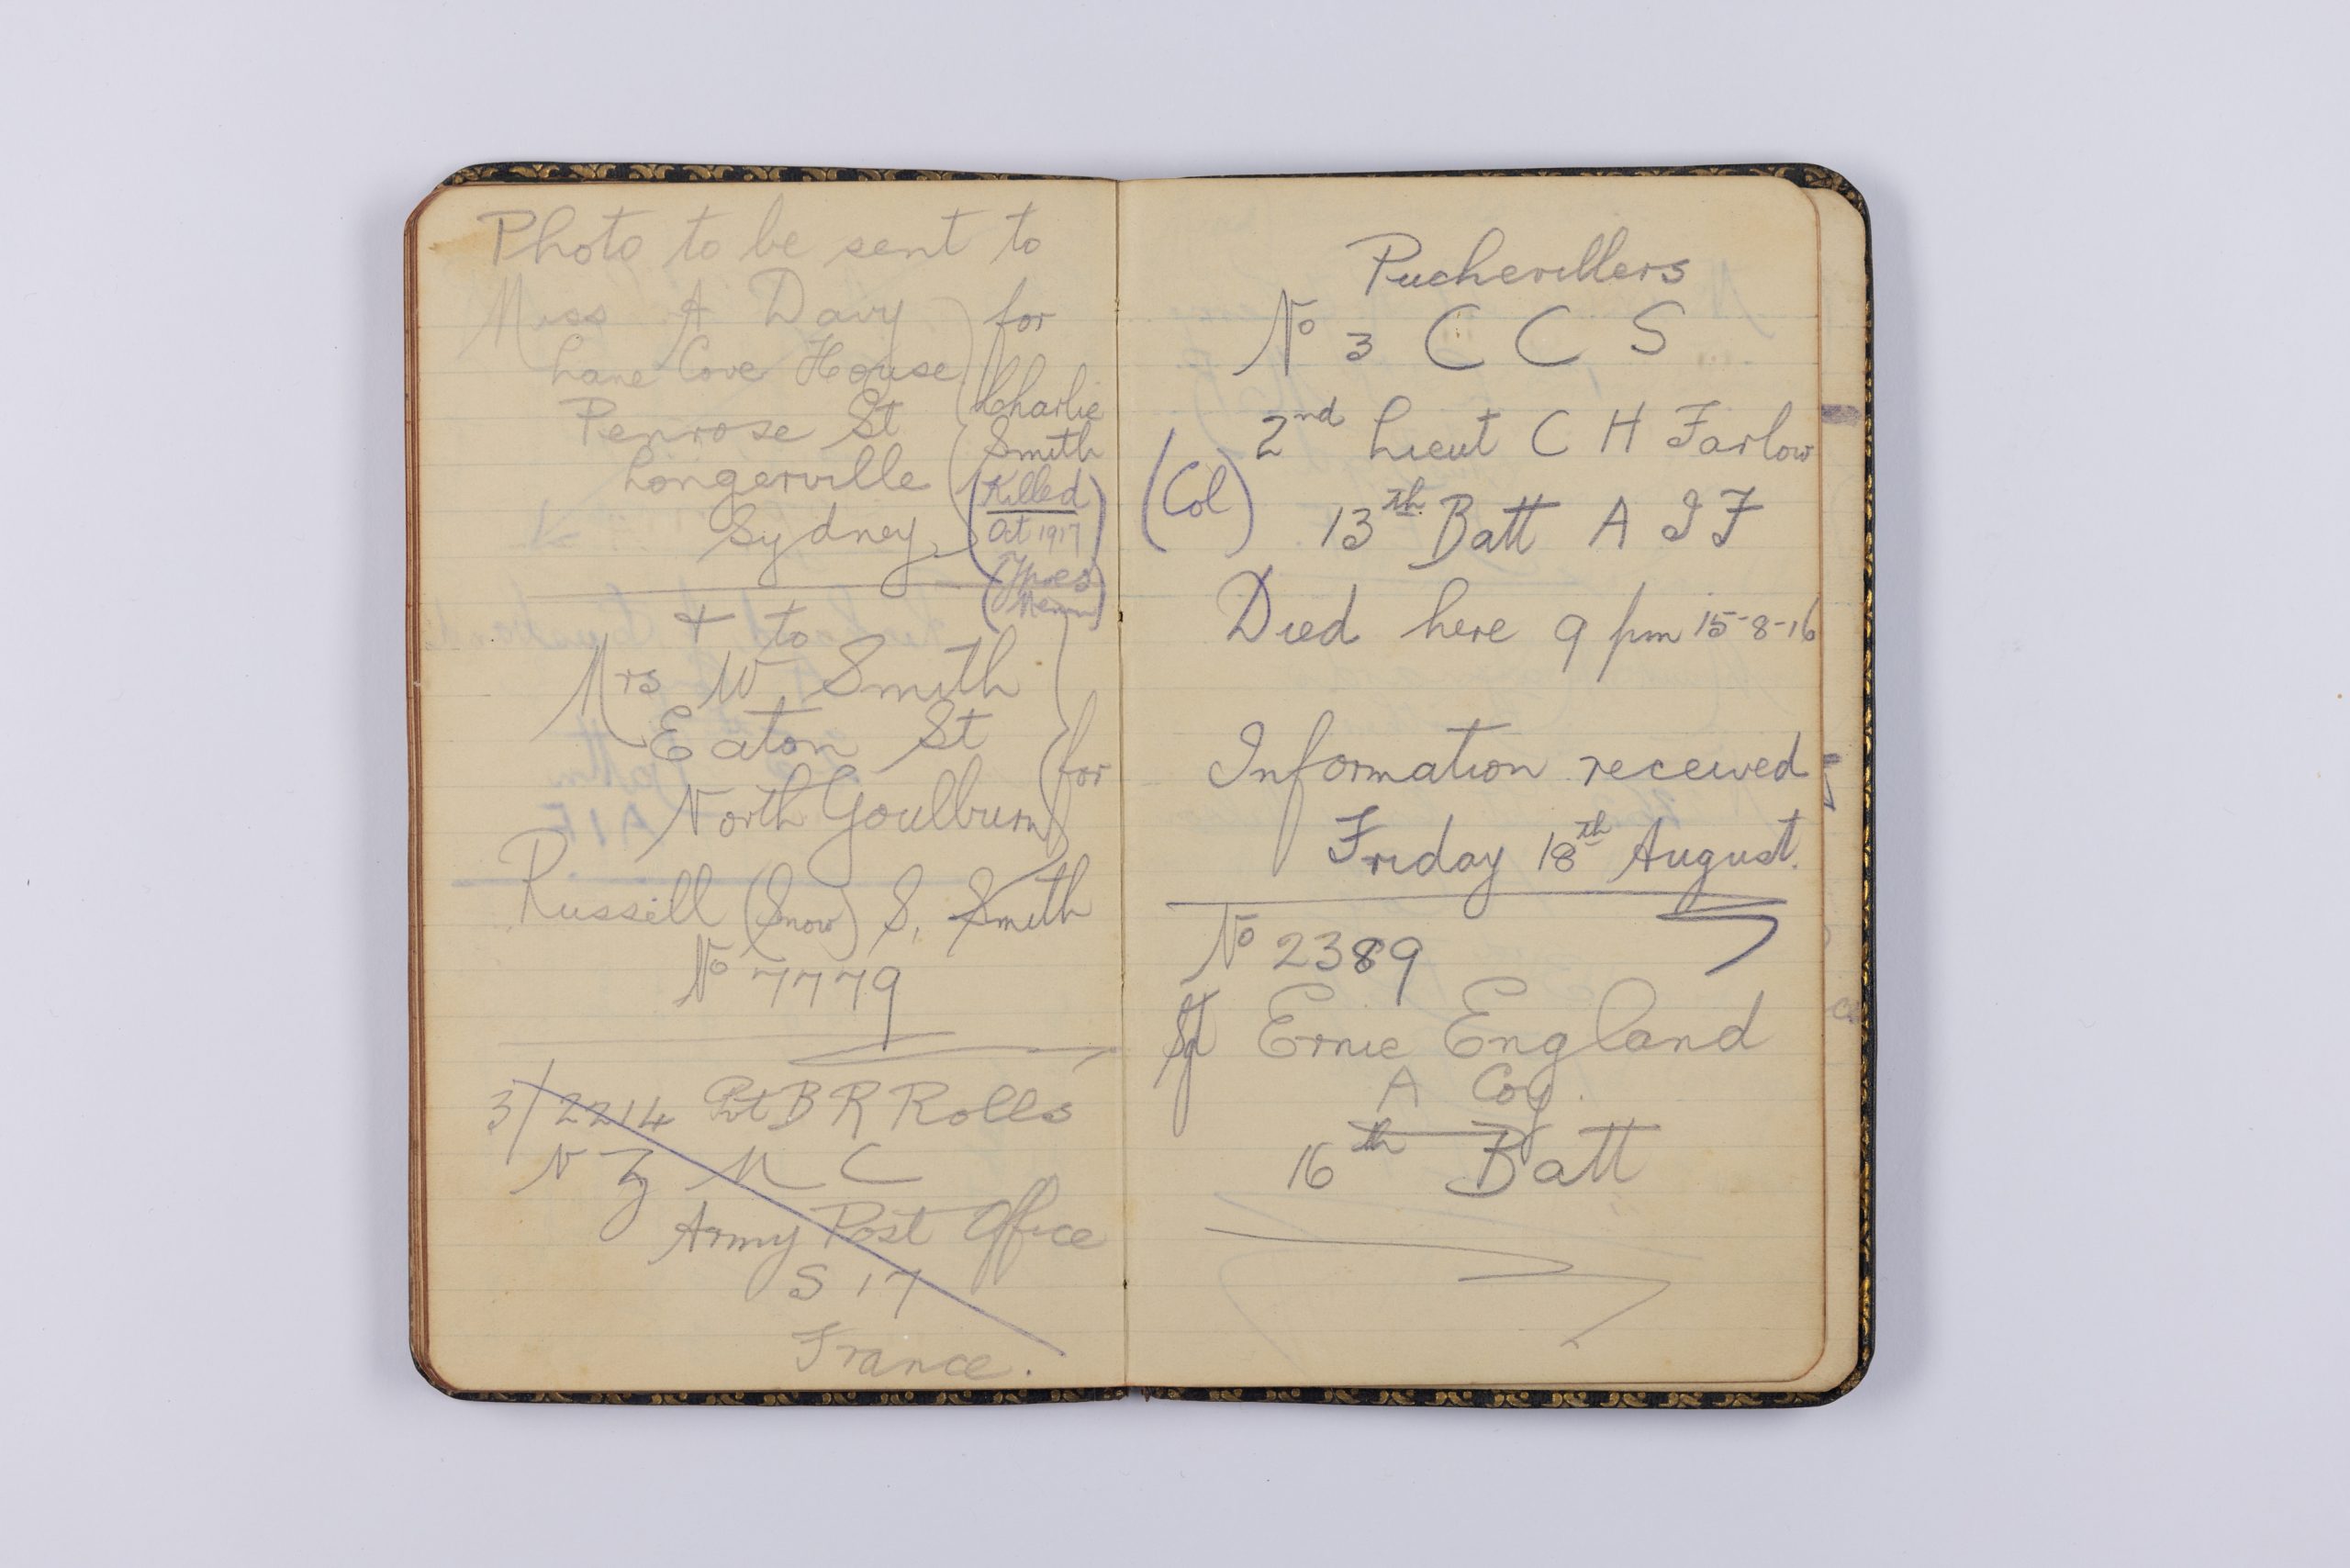 Photo to be sent to
Miss A Davy
Lane Cove House
Penrose St
Longerville
Sydney
for
Charlie
Smith
(Killed)
Oct 1917
(Ypres)
(Menin)
+ to
Mrs W. Smith
Eaton St
North Goulburn
for
Russell (Snow) S. Smith
No 7779
3/2214 Pvt B R Rolls
N Z M C
Army Post Office
S 17
France.
Puchevillers
No 3 C C S
2nd Lieut C H Farlow
(Col)
13th Batt A I F
Died here 9 pm 15-8-16
Information received
Friday 18th August.
No 2389
Sgt Ernie England
A Coy.
16th Batt